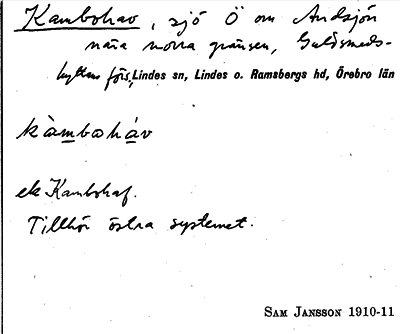 Kambohav, sjö Ö om Andsjön
nära norra gränsen, Guldsmeds-
hyttans förs, Lindes sn, Lindes o. Ramsbergs hd, Örebro län
kàmbohàv
ek Kambohaf.
Tillhör östra systemet.
SAM JANSSON 1910-11